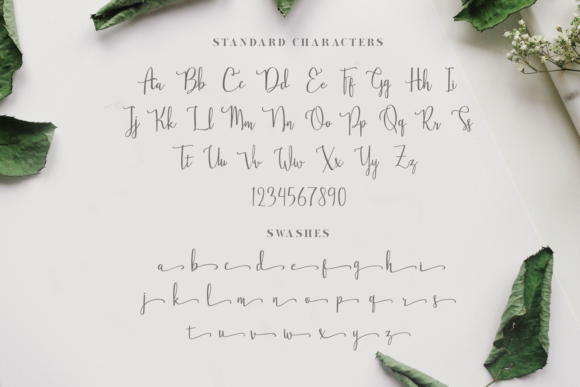 STANDARD CHARACTERS
Aa Bb Cc Dd Ee Ff Gg Hh Ii
Jj Kk Ll Mm Nn Oo Pp Qq Rr Ss
Tt Uu Vv Ww Xx Yy Zz
1234567890
SWASHES
a b c d e f g h i
j k l m n o p q r s
t u v w x y z